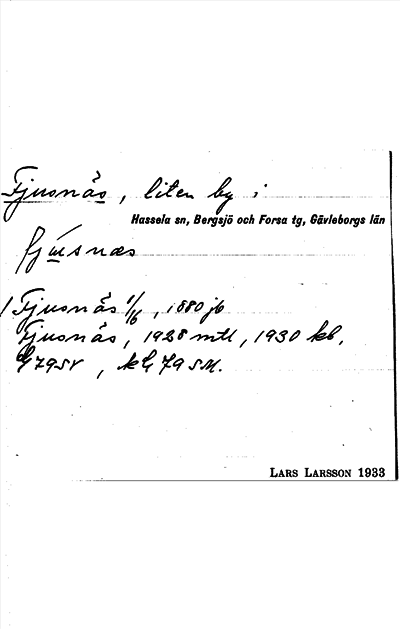 Fjusnäs, liten by i
Hassela sn, Bergsjö och Forsa tg, Gävleborgs län
fjusnæs
Fjusnäs 1/6, 1880 jb
Fjusnäs, 1928 mtl, 1930 kb,
G 79SV, kG 79 SM.
LARS LARSSON 1933